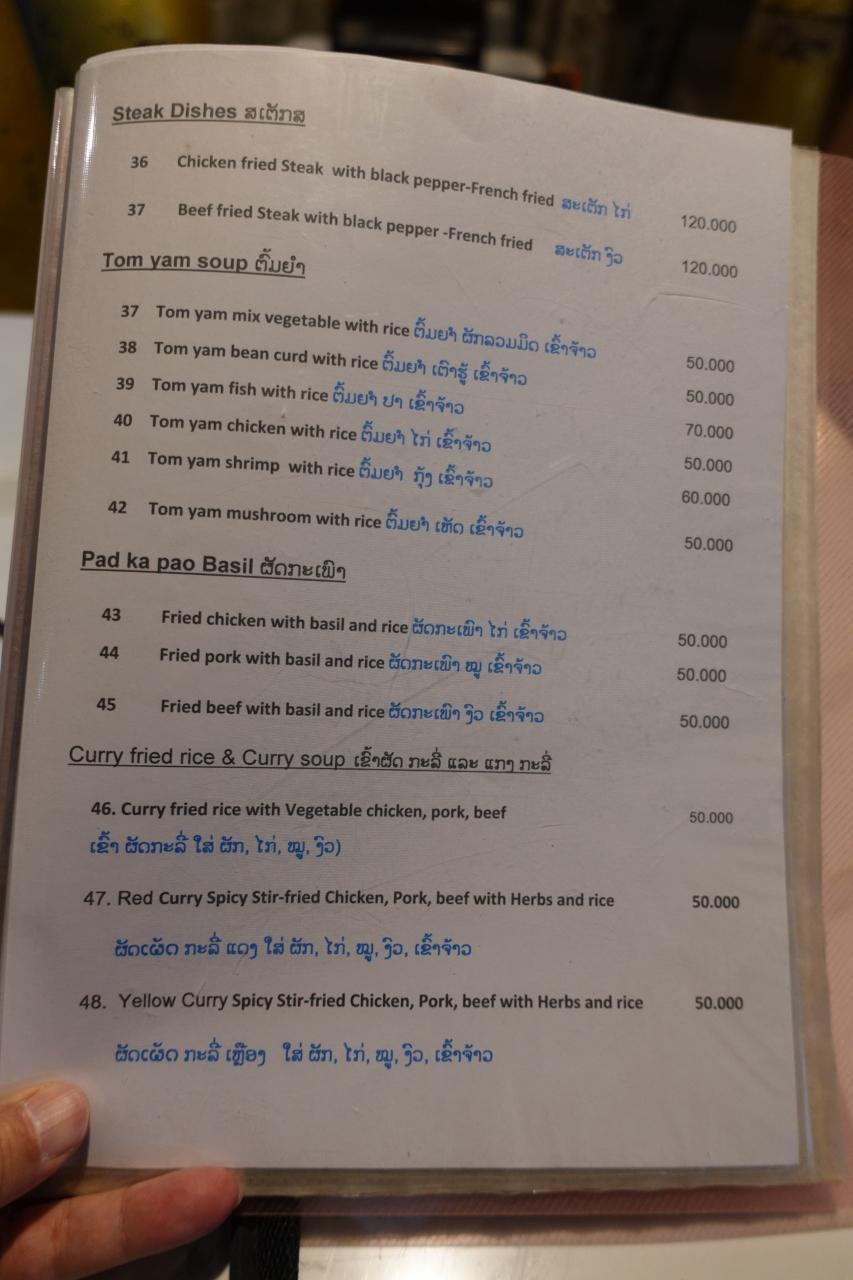 Steak Dishes ສເຕັກສ
36 Chicken fried Steak with black pepper-French fried ສະເຕັກ ໄກ່ 120.000
37 Beef fried Steak with black pepper -French fried ສະເຕັກ ງົວ 120.000
Tom yam soup ຕົ້ມຍຳ
37 Tom yam mix vegetable with rice ຕົ້ມຍຳ ຜັກລວມມິດ ເຂົ້າຈ້າວ 50.000
38 Tom yam bean curd with rice ຕົ້ມຍຳ ເຕົາຮູ້ ເຂົ້າຈ້າວ 50.000
39 Tom yam fish with rice ຕົ້ມຍຳ ປາ ເຂົ້າຈ້າວ 70.000
40 Tom yam chicken with rice ຕົ້ມຍຳ ໄກ່ ເຂົ້າຈ້າວ 50.000
41 Tom yam shrimp with rice ຕົ້ມຍຳ ກຸ້ງ ເຂົ້າຈ້າວ 60.000
42 Tom yam mushroom with rice ຕົ້ມຍຳ ເຫັດ ເຂົ້າຈ້າວ 50.000
Pad ka pao Basil ຜັດກະເພົາ
43 Fried chicken with basil and rice ຜັດກະເພົາ ໄກ່ ເຂົ້າຈ້າວ 50.000
44 Fried pork with basil and rice ຜັດກະເພົາ ໝູ ເຂົ້າຈ້າວ 50.000
45 Fried beef with basil and rice ຜັດກະເພົາ ງົວ ເຂົ້າຈ້າວ 50.000
Curry fried rice & Curry soup ເຂົ້າຜັດ ກະລີ່ ແລະ ແກງ ກະລີ່
46. Curry fried rice with Vegetable chicken, pork, beef 50.000
ເຂົ້າ ຜັດກະລີ່ ໃສ່ ຜັກ, ໄກ່, ໝູ, ງົວ)
47. Red Curry Spicy Stir-fried Chicken, Pork, beef with Herbs and rice 50.000
ຜັດເຜັດ ກະລີ່ ແດງ ໃສ່ ຜັກ, ໄກ່, ໝູ, ງົວ, ເຂົ້າຈ້າວ
48. Yellow Curry Spicy Stir-fried Chicken, Pork, beef with Herbs and rice 50.000
ຜັດເຜັດ ກະລີ່ ເຫຼືອງ ໃສ່ ຜັກ, ໄກ່, ໝູ, ງົວ, ເຂົ້າຈ້າວ